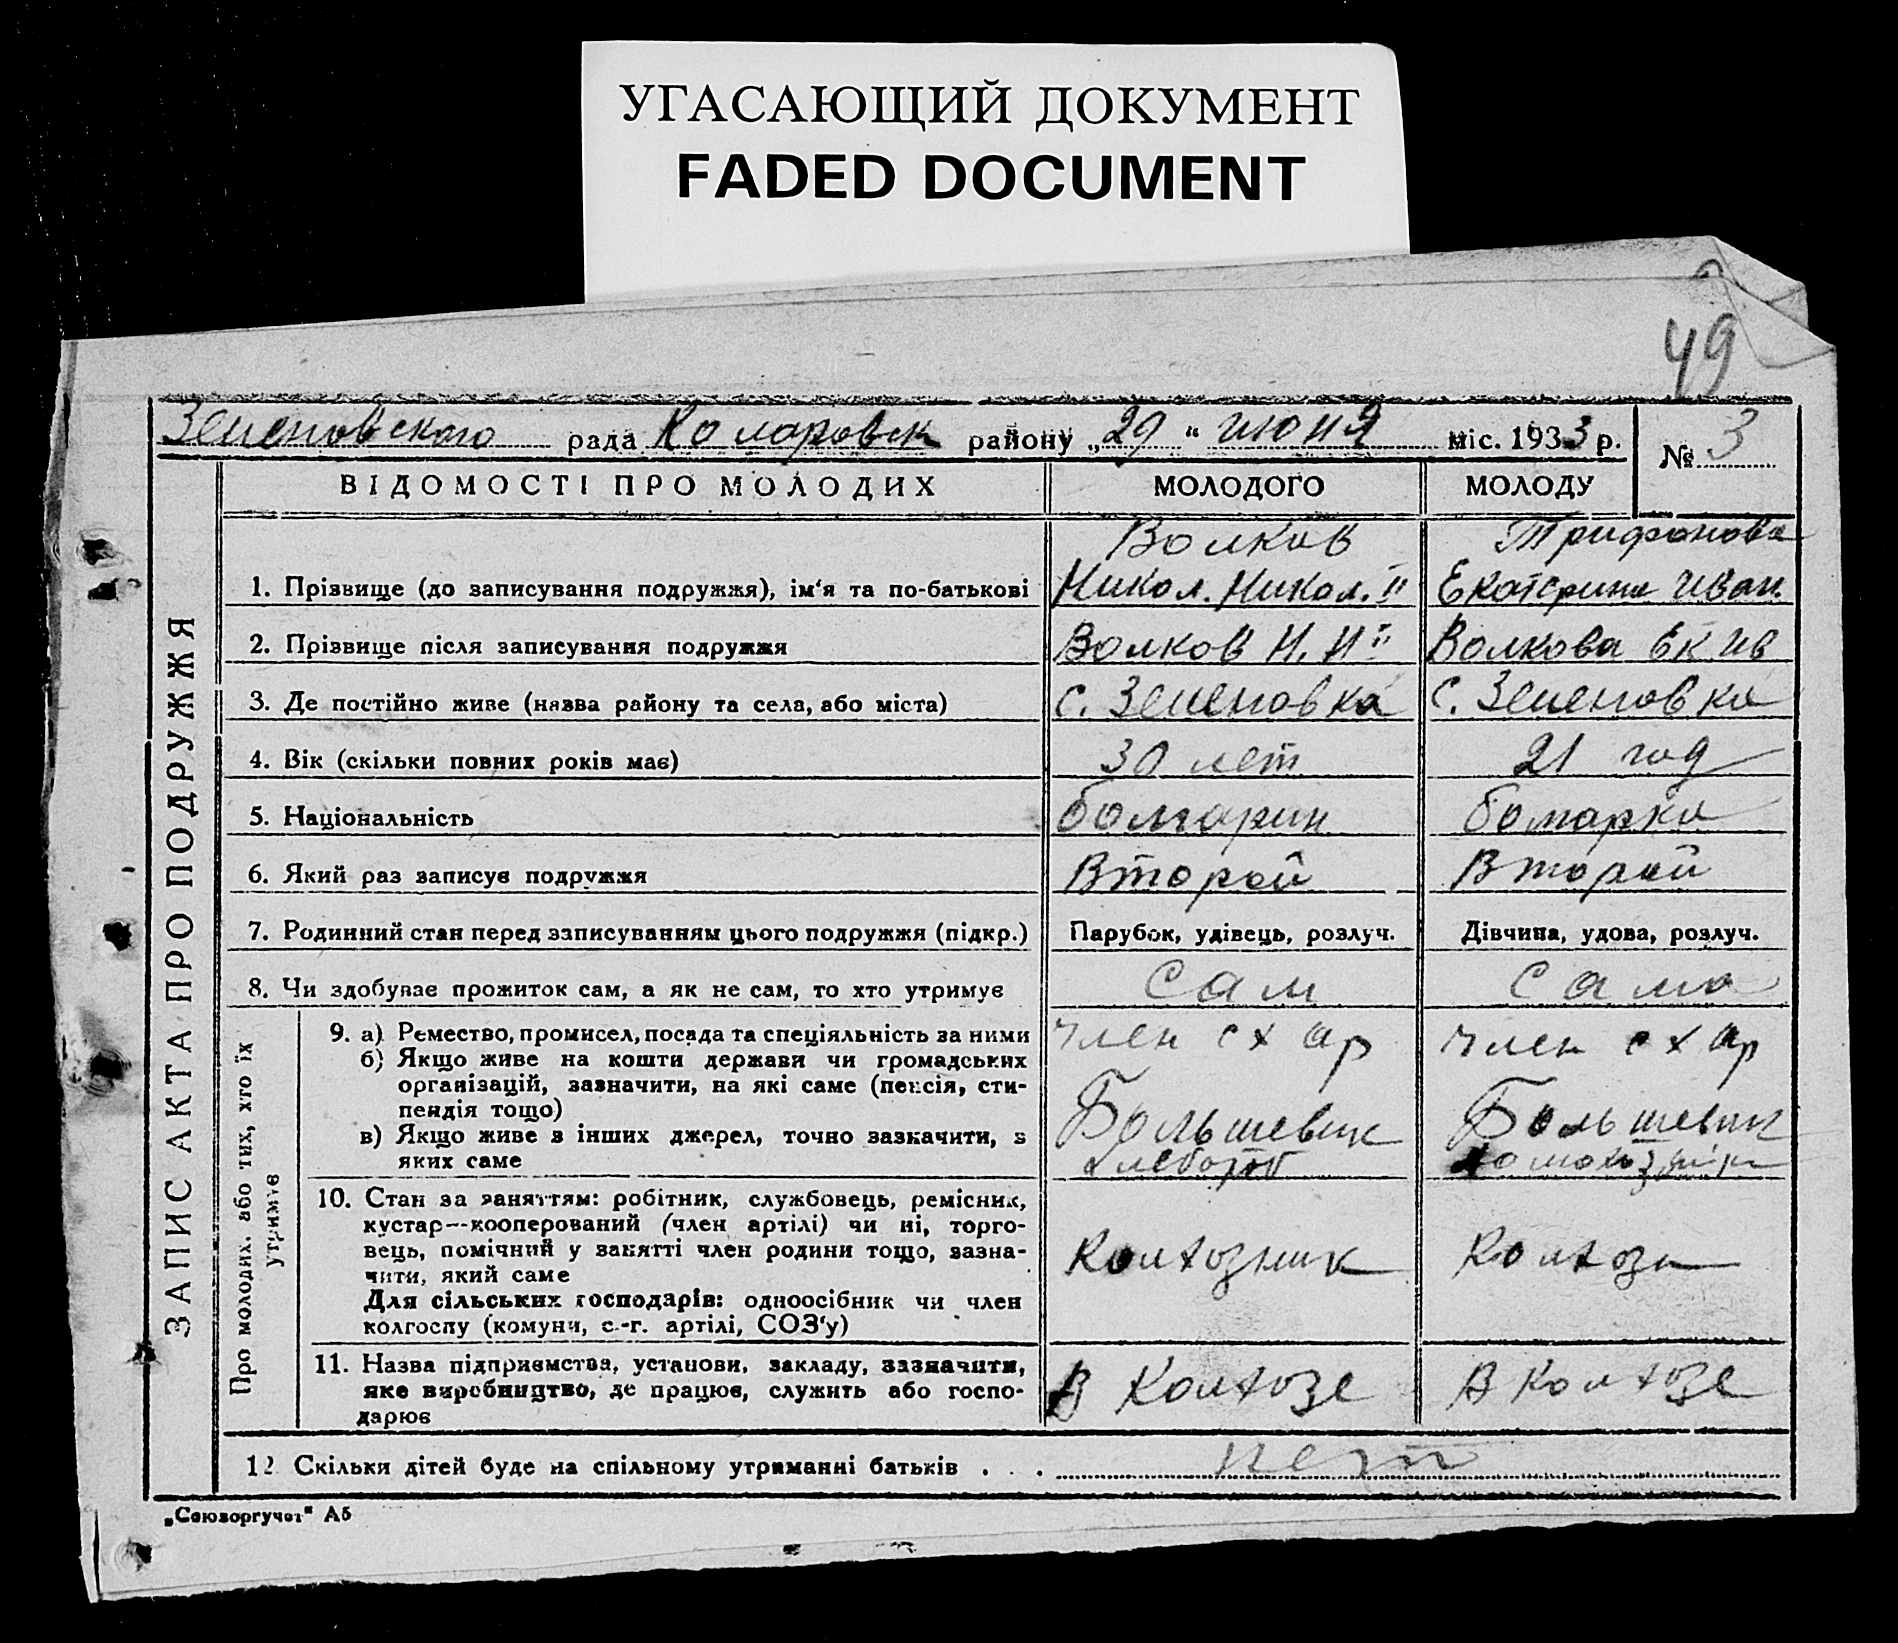 УГАСАЮЩИЙ ДОКУМЕНТ
FADED DOCUMENT
49
Зеленовского рада Коларовск району „29“ июня міс. 1933 р.
№ 3
ЗАПИС АКТА ПРО ПОДРУЖЖЯ
ВІДОМОСТІ ПРО МОЛОДИХ МОЛОДОГО МОЛОДУ
Волков Трифонова
1. Прізвище (до записування подружжя), ім‘я та по-батькові Никол. Никол. II Екатерина Иван.
2. Прізвище після записування подружжя Волков Н. Н II Волкова Ек Ив
3. Де постійно живе (назва району та села, або міста) с. Зеленовка с. Зеленовка
4. Вік (скільки повних років має) 30 лет 21 год
5. Національність болгарин болгарка
6. Який раз записує подружжя Второй Второй
7. Родинний стан перед записуванням цього подружжя (підкр.) Парубок, удівець, розлуч. Дівчина, удова, розлуч.
8. Чи здобуває прожиток сам, а як не сам, то хто утримує Сам Сама
Про молодих, або тих, хто їх
утримує
9. а) Ремество, промисел, посада та спеціяльність за ними член с х ар член с х ар
б) Якщо живе на кошти держави чи громадських
організацій, зазначити, на які саме (пенсія, сти-
пендія тощо) Большевик Большевик
в) Якщо живе з інших джерел, точно зазначити, з
яких саме
10. Стан за заняттям: робітник, службовець, ремісник,
кустар—кооперований (член артілі) чи ні, торго-
вець, помічний у занятті член родини тощо, зазна- Колхозник Колхозн
чити, який саме
Для сільських господарів: одноосібник чи член
колгоспу (комуни, с.-г. артілі, СОЗ‘у)
11. Назва підприємства, установи, закладу, зазначити,
яке виробництво, де працює, служить або госпо- В Колхозе В Колхозе
дарює
12 Скільки дітей буде на спільному утриманні батьків . . . нет
„Союзоргучет“ А5